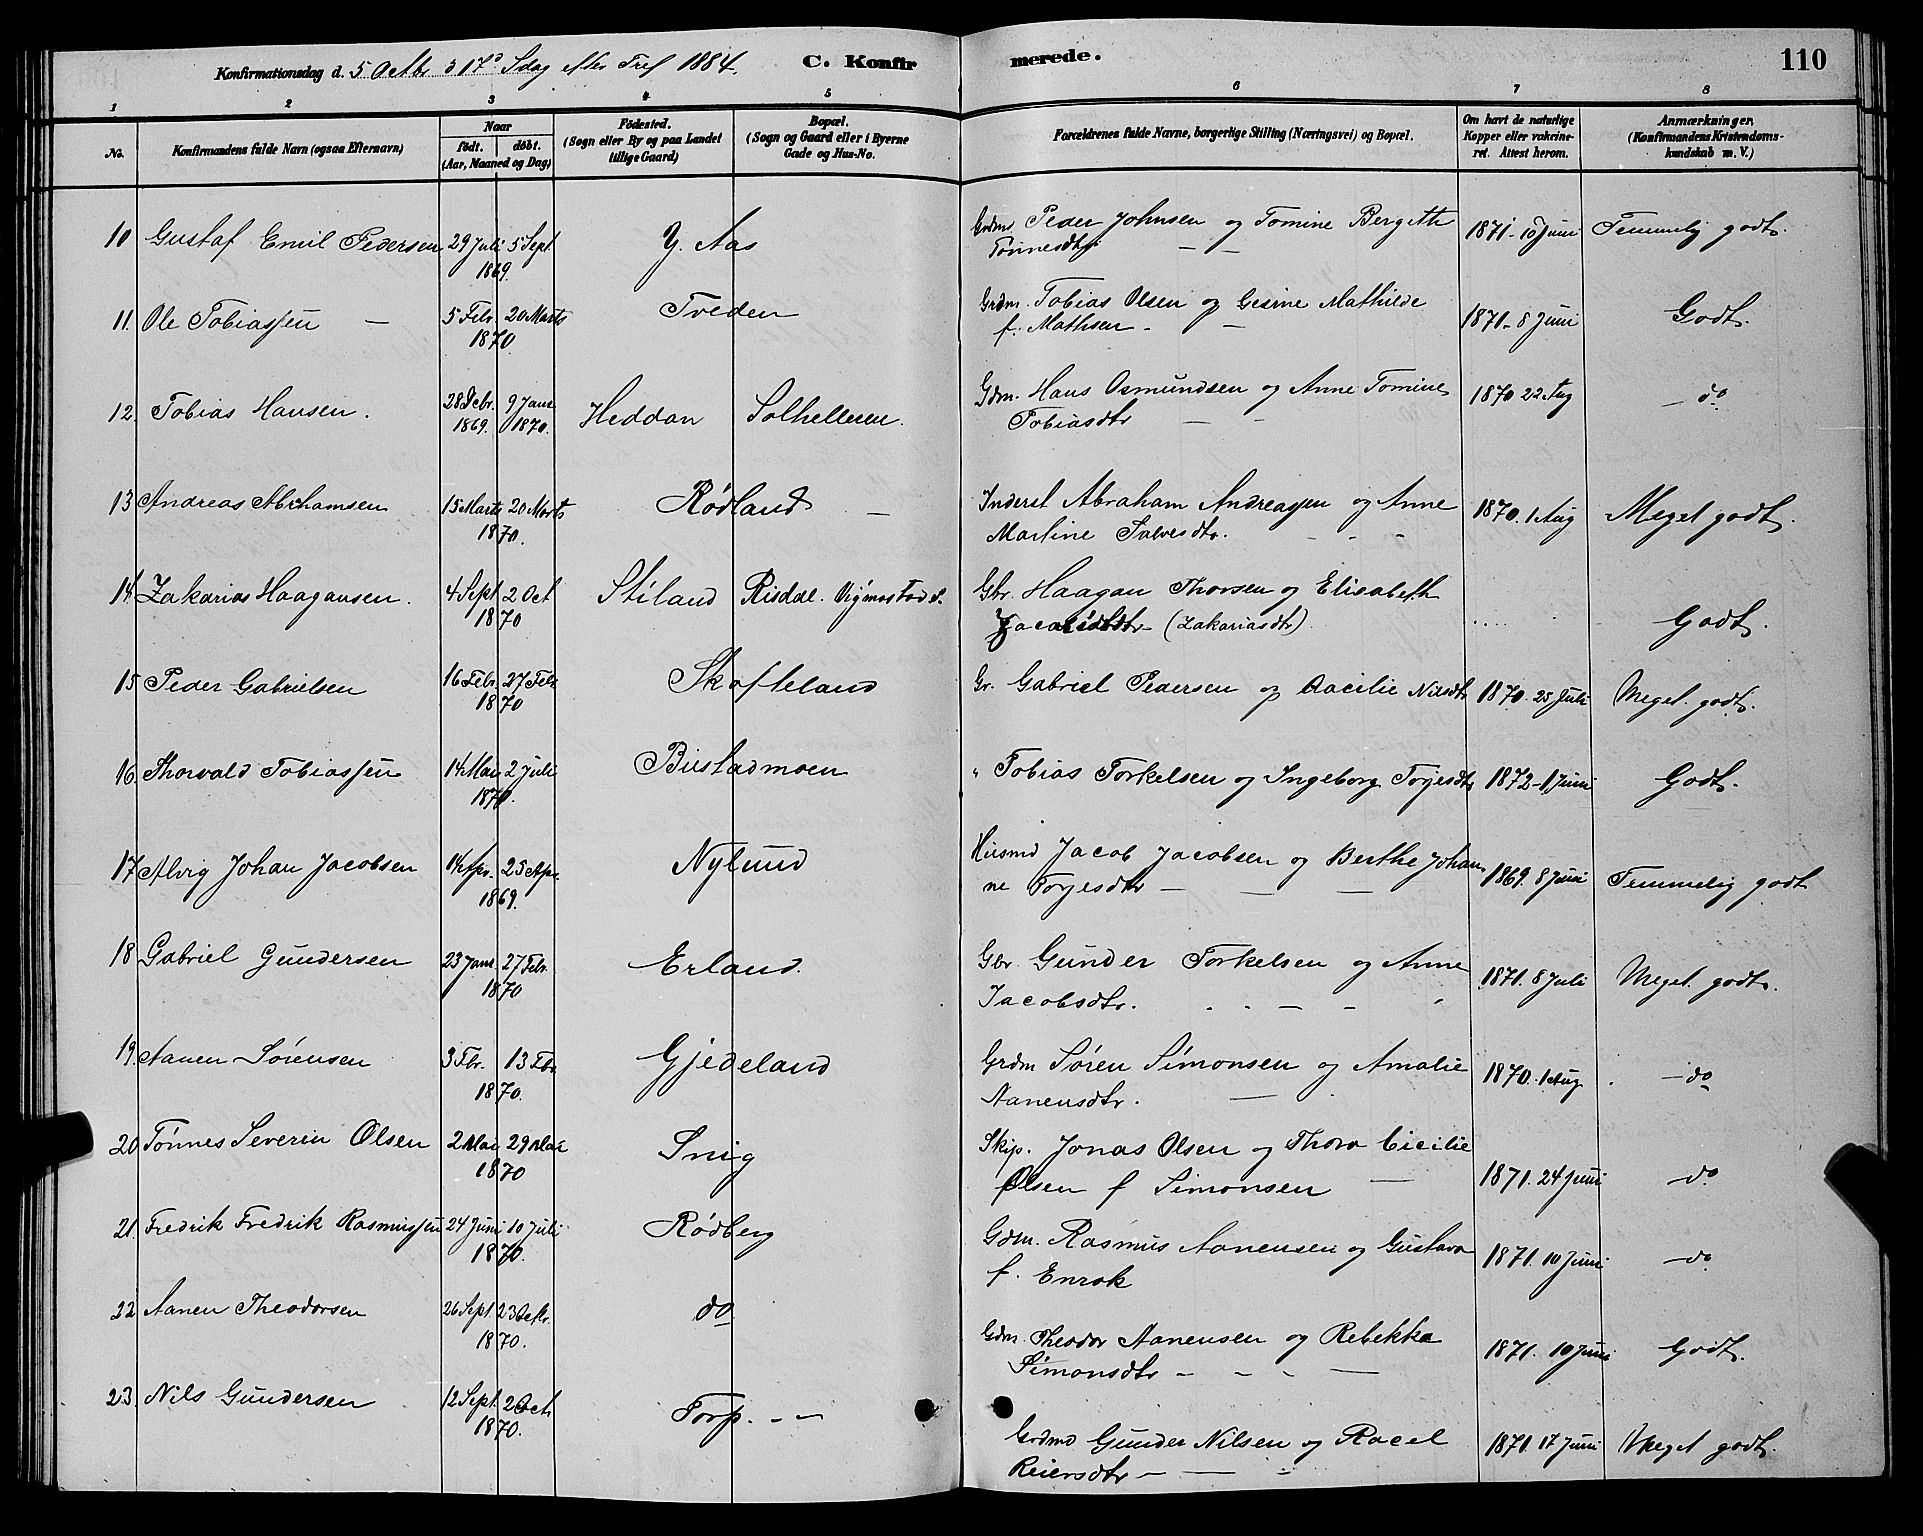 Konfirmationsdag d. 5 Octbr 17de Sdag efter Tref 1884. C. Konfirmerede. 110
1 2 3 4 5 6 7 8
No. Konfirmandens fulde Navn (ogsaa Efternavn) Naar födt. döbt. (Aar, Maaned og Dag) Födested. (Sogn eller By og paa Landet tillige Gaard) Bopæl. (Sogn og Gaard eller i Byerne Gade og Hus-No. Forældrenes fulde Navne, borgerlige Stilling (Næringsvei) og Bopæl. Om havt de naturlige Kopper eller vakcineret. Attest herom. Anmærkninger, (Konfirmandens Kristendomskundskab m. V.)
10 Gustaf Emil Pedersen 29 Juli 5 Sept. 1869. Y. Aas Grdm. Peder Johnsen og Tomine Bergith Tønnesdtr — — 1871 - 10 Juni Temmelig godt.
11. Ole Tobiassen — 5 Febr. 20 Marts 1870. Tveden Grdm. Tobias Olsen og Gesine Mathilde f. Mathsen — — 1871 - 8 Juni Godt.
12. Tobias Hansen. 28 Debr. 1869. 9 Janr 1870. Heddan Solhelleren. Gdm. Hans Osmundsen og Anne Tomine Tobiasdtr — - 1870 22 Aug — do
13 Andreas Abrhamsen 15 Marts 20 Marts 1870. Rødland — Inderst Abraham Andreassen og Anne Martine Salvesdtr. - - - 1870. 1 Aug Meget godt.
14. Zakarias Haagansen. 4 Sept 2 Oct 1870 Stiland Risdal. Vigmostad S. Gbr. Haagan Thorsen og Elisabeth (Zakariasdtr) ..... Godt.
15 Peder Gabrielsen 16 Febr. 27 Febr 1870 Skofteland Gr. Gabriel Pedersen og Aacilie Nilsdtr 1870. 25 Juli Meget. godt.
16 Thorvald Tobiassen 14 Mai 2 Juli 1870. Bustadmoen " Tobias Torkelsen og Ingeborg Torjesdtr 1872 - 1 Juni Godt.
17 Alvig Johan Jacobsen 14 Apr. 25 Apr. 1869. Nylund Husmd Jacob Jacobsen og Berthe Johanne Torjesdtr — — — 1869. 8 Juni Temmelig godt
18 Gabriel Gundersen 23 Janr. 27 Febr. 1870 Erland. Gbr. Gunder Torkelsen og Anne Jacobsdtr. . . — — ' 1871. 8 Juli Meget. godt.
19. Aanen Sörensen 3 Fbr. 13 Fbr 1870. Gjedeland Grdm Søren Simonsen og Amalie Aanensdtr. — . 1870. 1 Aug. — do
20 Tønnes Severin Olsen 2 Mai 29 Mai 1870 Snig Skip. Jonas Olsen og Thora Cicilie Olsen f Simonsen — 1871. 24 Juni do
21. Fredrik Fredrik Rasmussen 24 Juni 10 Juli 1870. Rödberg Gdm. Rasmus Aanensen og Gustava f. Enrok 1871. 10 Juni do
22 Aanen Theodorsen 26 Sept 23 Octbr. 1870. do Gdm. Theodor Aanensen og Rebekka Simonsdtr - - - — 1871. 10 Juni Godt.
23. Nils Gundersen 12 Sept. 2 Octr 1870. Torp. - - Grdmd Gunder Nilsen og Racel Reiersdtr — — - 1871. 17 Juni Meget godt.